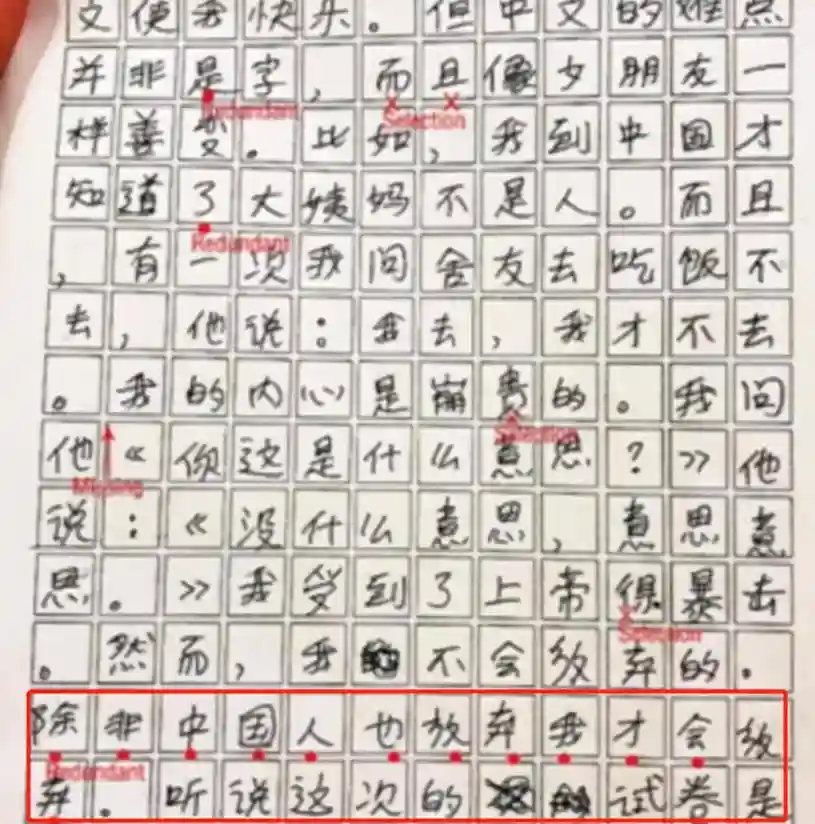 文使我快乐。但中文的难点
并非是字，而且像女朋友一
Redundant
Selection
样善变。比如，我到中国才
知道了大姨妈不是人。而且
Redundant
，有一次我问舍友去吃饭不
去，他说：我去，我才不去
。我的内心是崩贵的。我问
Selection
他《你这是什么意思？》他
Missing
说：《没什么意思，意思意
思。》我受到了上帝得暴击
Selection
。然而，我不会放弃的.
除非中国人也放弃我才会放
Redundant
弃。听说这次的试卷是